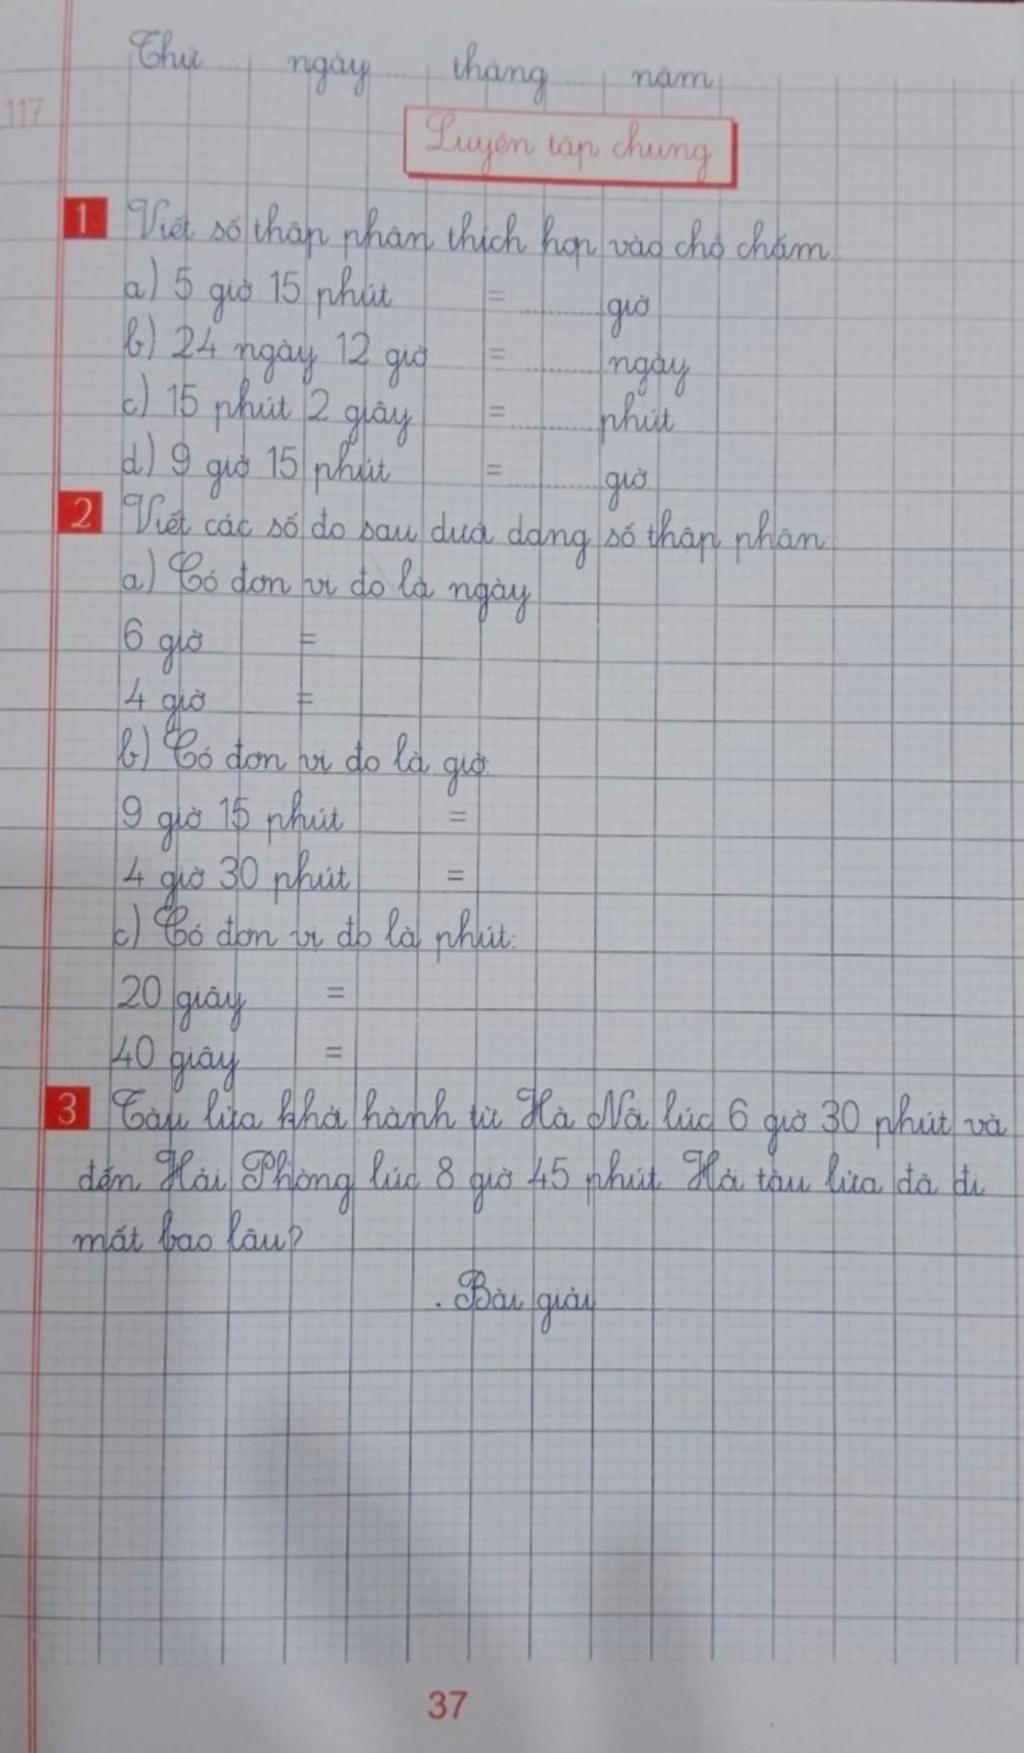 Thứ ... ngày ... tháng ... năm
117
Luyện tập chung
1 Viết số thập phân thích hợp vào chỗ chấm
a) 5 giờ 15 phút = .......... giờ
b) 24 ngày 12 giờ = .......... ngày
c) 15 phút 2 giây = .......... phút
d) 9 giờ 15 phút = .......... giờ.
2 Viết các số đo sau dưới dạng số thập phân
a) Có đơn vị đo là ngày
6 giờ =
4 giờ =
b) Có đơn vị đo là giờ.
9 giờ 15 phút =
4 giờ 30 phút =
c) Có đơn vị đo là phút:
20 giây =
40 giây =
3 Tàu lửa khởi hành từ Hà Nội lúc 6 giờ 30 phút và
đến Hải Phòng lúc 8 giờ 45 phút. Hỏi tàu lửa đã đi
mất bao lâu?
. Bài giải
37